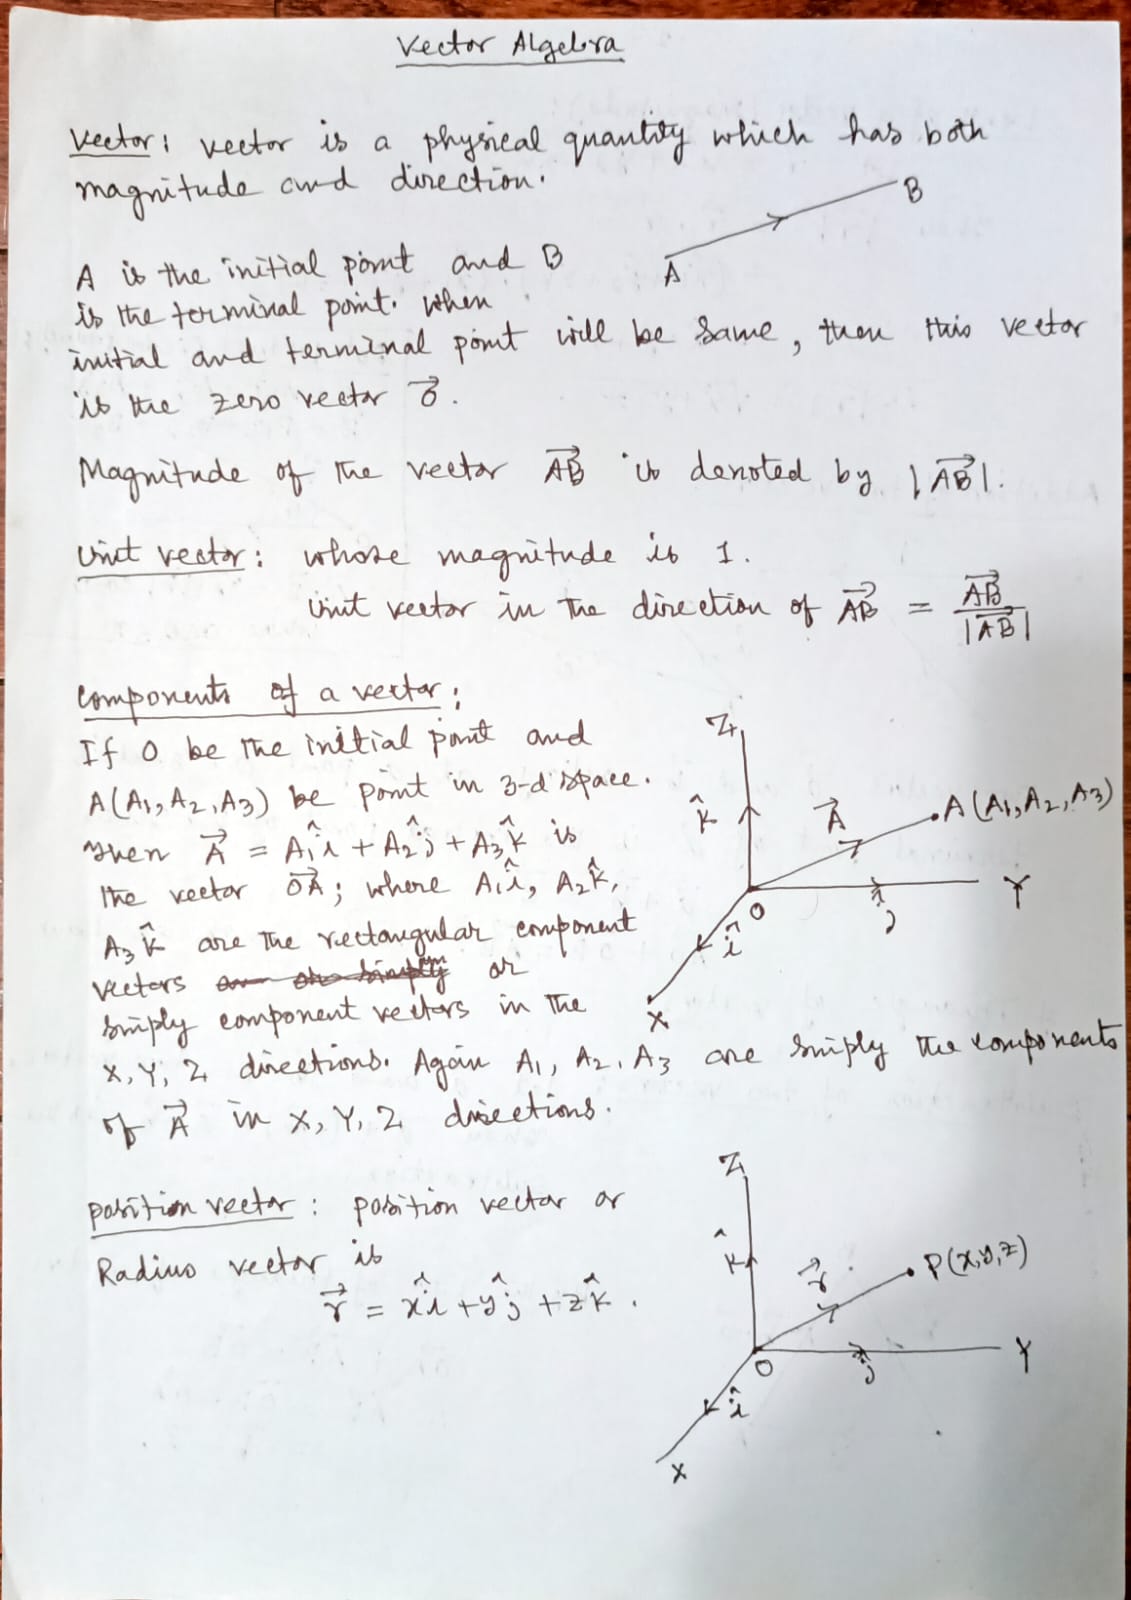 Vector Algebra
Vector: vector is a physical quantity which has both
magnitude and direction.
B
A
A is the initial point and B
is the terminal point. when
initial and terminal point will be same, then this vector
is the zero vector →0.
Magnitude of the vector →AB is denoted by |→AB|.
Unit vector: whose magnitude is 1.
Unit vector in the direction of →AB = →AB / |→AB|
Components of a vector:
If O be the initial point and
A(A₁, A₂, A₃) be point in 3-d space.
Then →A = A₁î + A₂ĵ + A₃k̂ is
the vector →OA; where A₁î, A₂k̂,
A₃k̂ are the rectangular component
vectors or
simply component vectors in the
X, Y, Z directions. Again A₁, A₂, A₃ are simply the components
of →A in X, Y, Z directions.
Z
k̂
→A
A(A₁, A₂, A₃)
O
ĵ
Y
î
X
Position vector: position vector or
Radius vector is
→r = xî + yĵ + zk̂.
Z
k̂
→r
P(x,y,z)
O
ĵ
Y
î
X